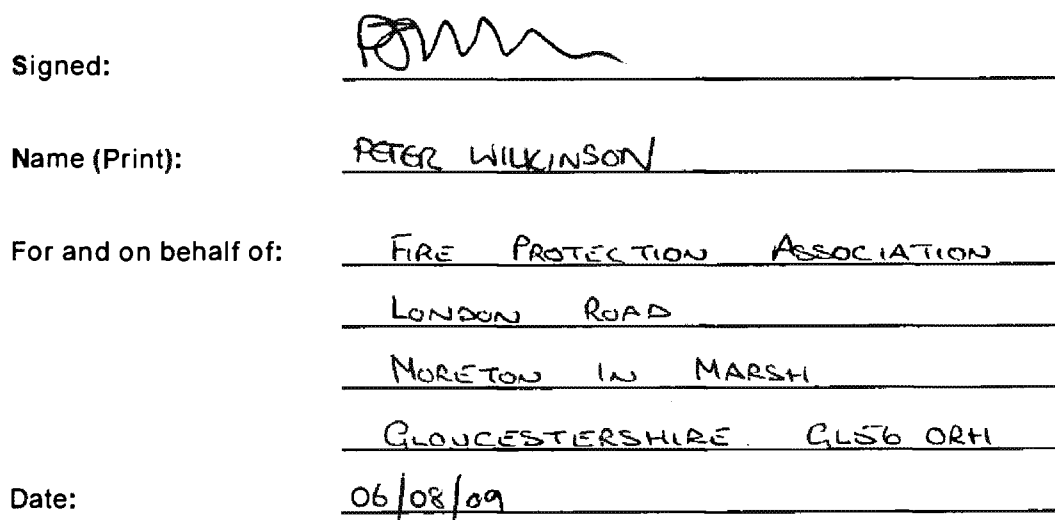 Signed:
Name (Print): PETER WILKINSON
For and on behalf of: FIRE PROTECTION ASSOCIATION
LONDON ROAD
MORETON IN MARSH
GLOUCESTERSHIRE. GL56 0RH
Date: 06/08/09